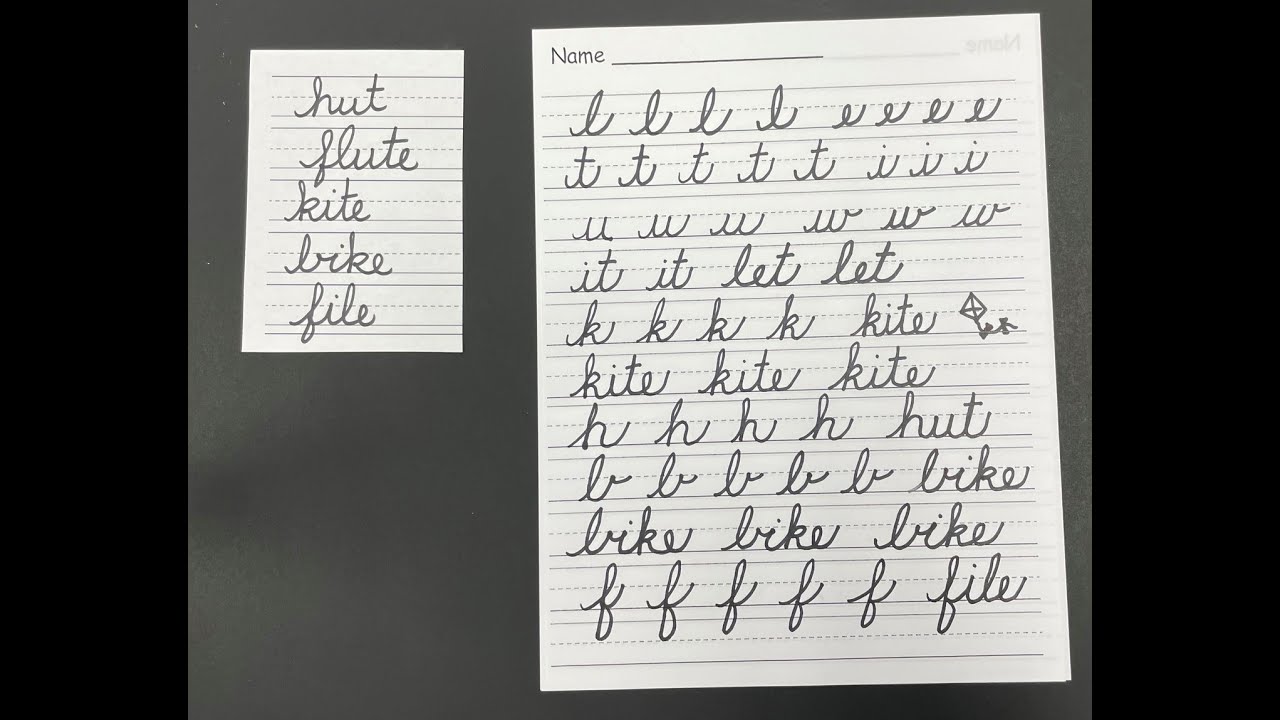 hut
flute
kite
bike
file
Name
l l l l e e e e
t t t t t i i i
u u u w w w
it it let let
k k k k kite
kite kite kite
h h h h hut
b b b b b bike
bike bike bike
f f f f f file